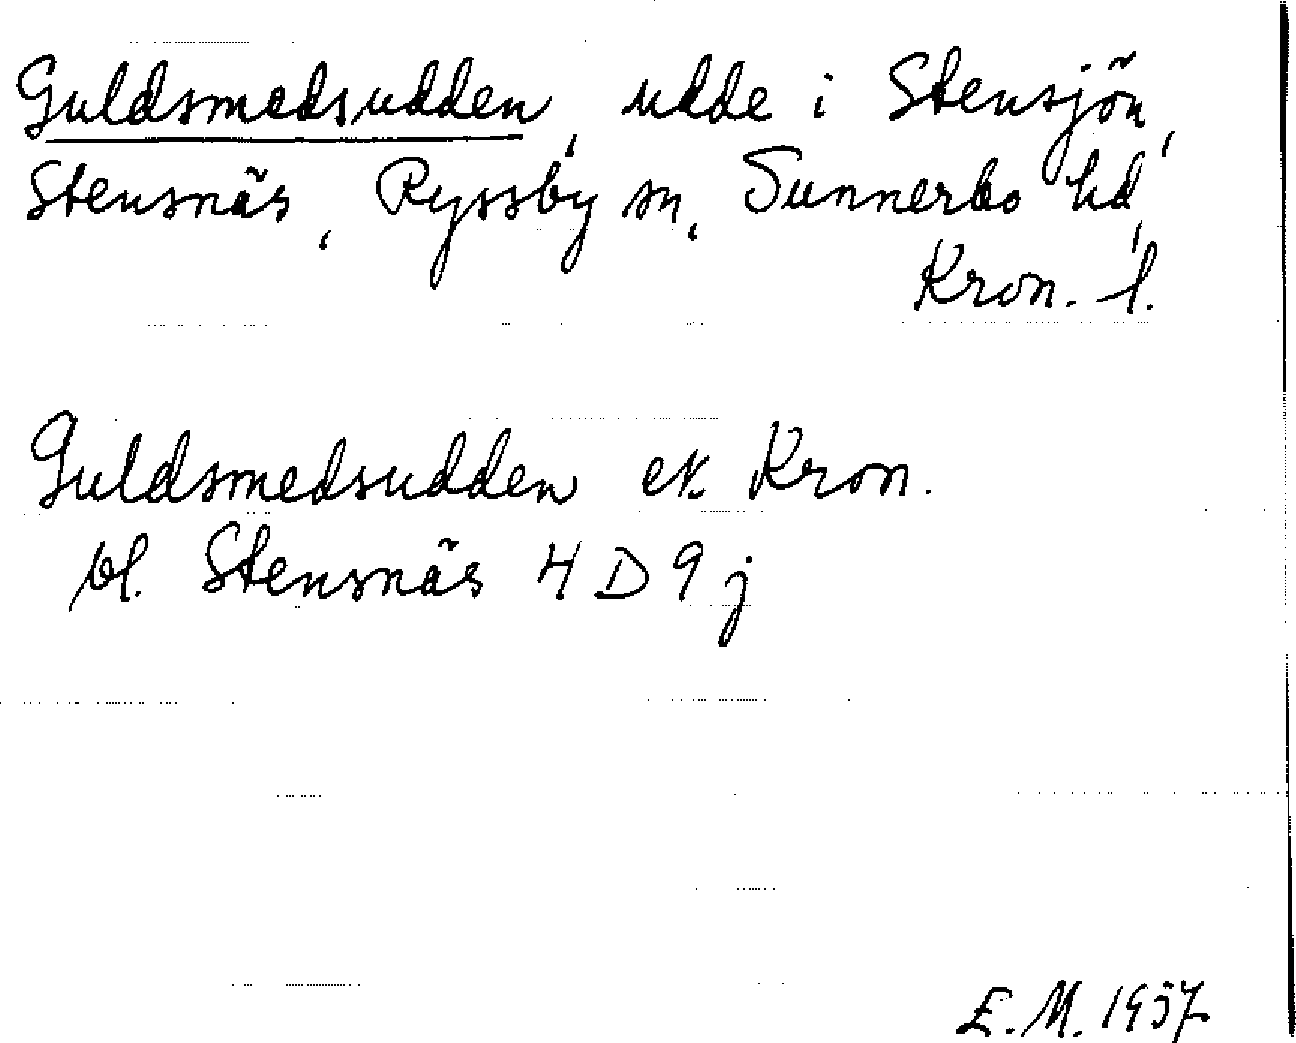 Guldsmedsudden, udde i Stensjön,
Stensnäs, Ryssby sn, Sunnerbo hd,
Kron. l.
Guldsmedsudden ek. Kron.
bl. Stensnäs 4 D 9 j
E. M. 1957